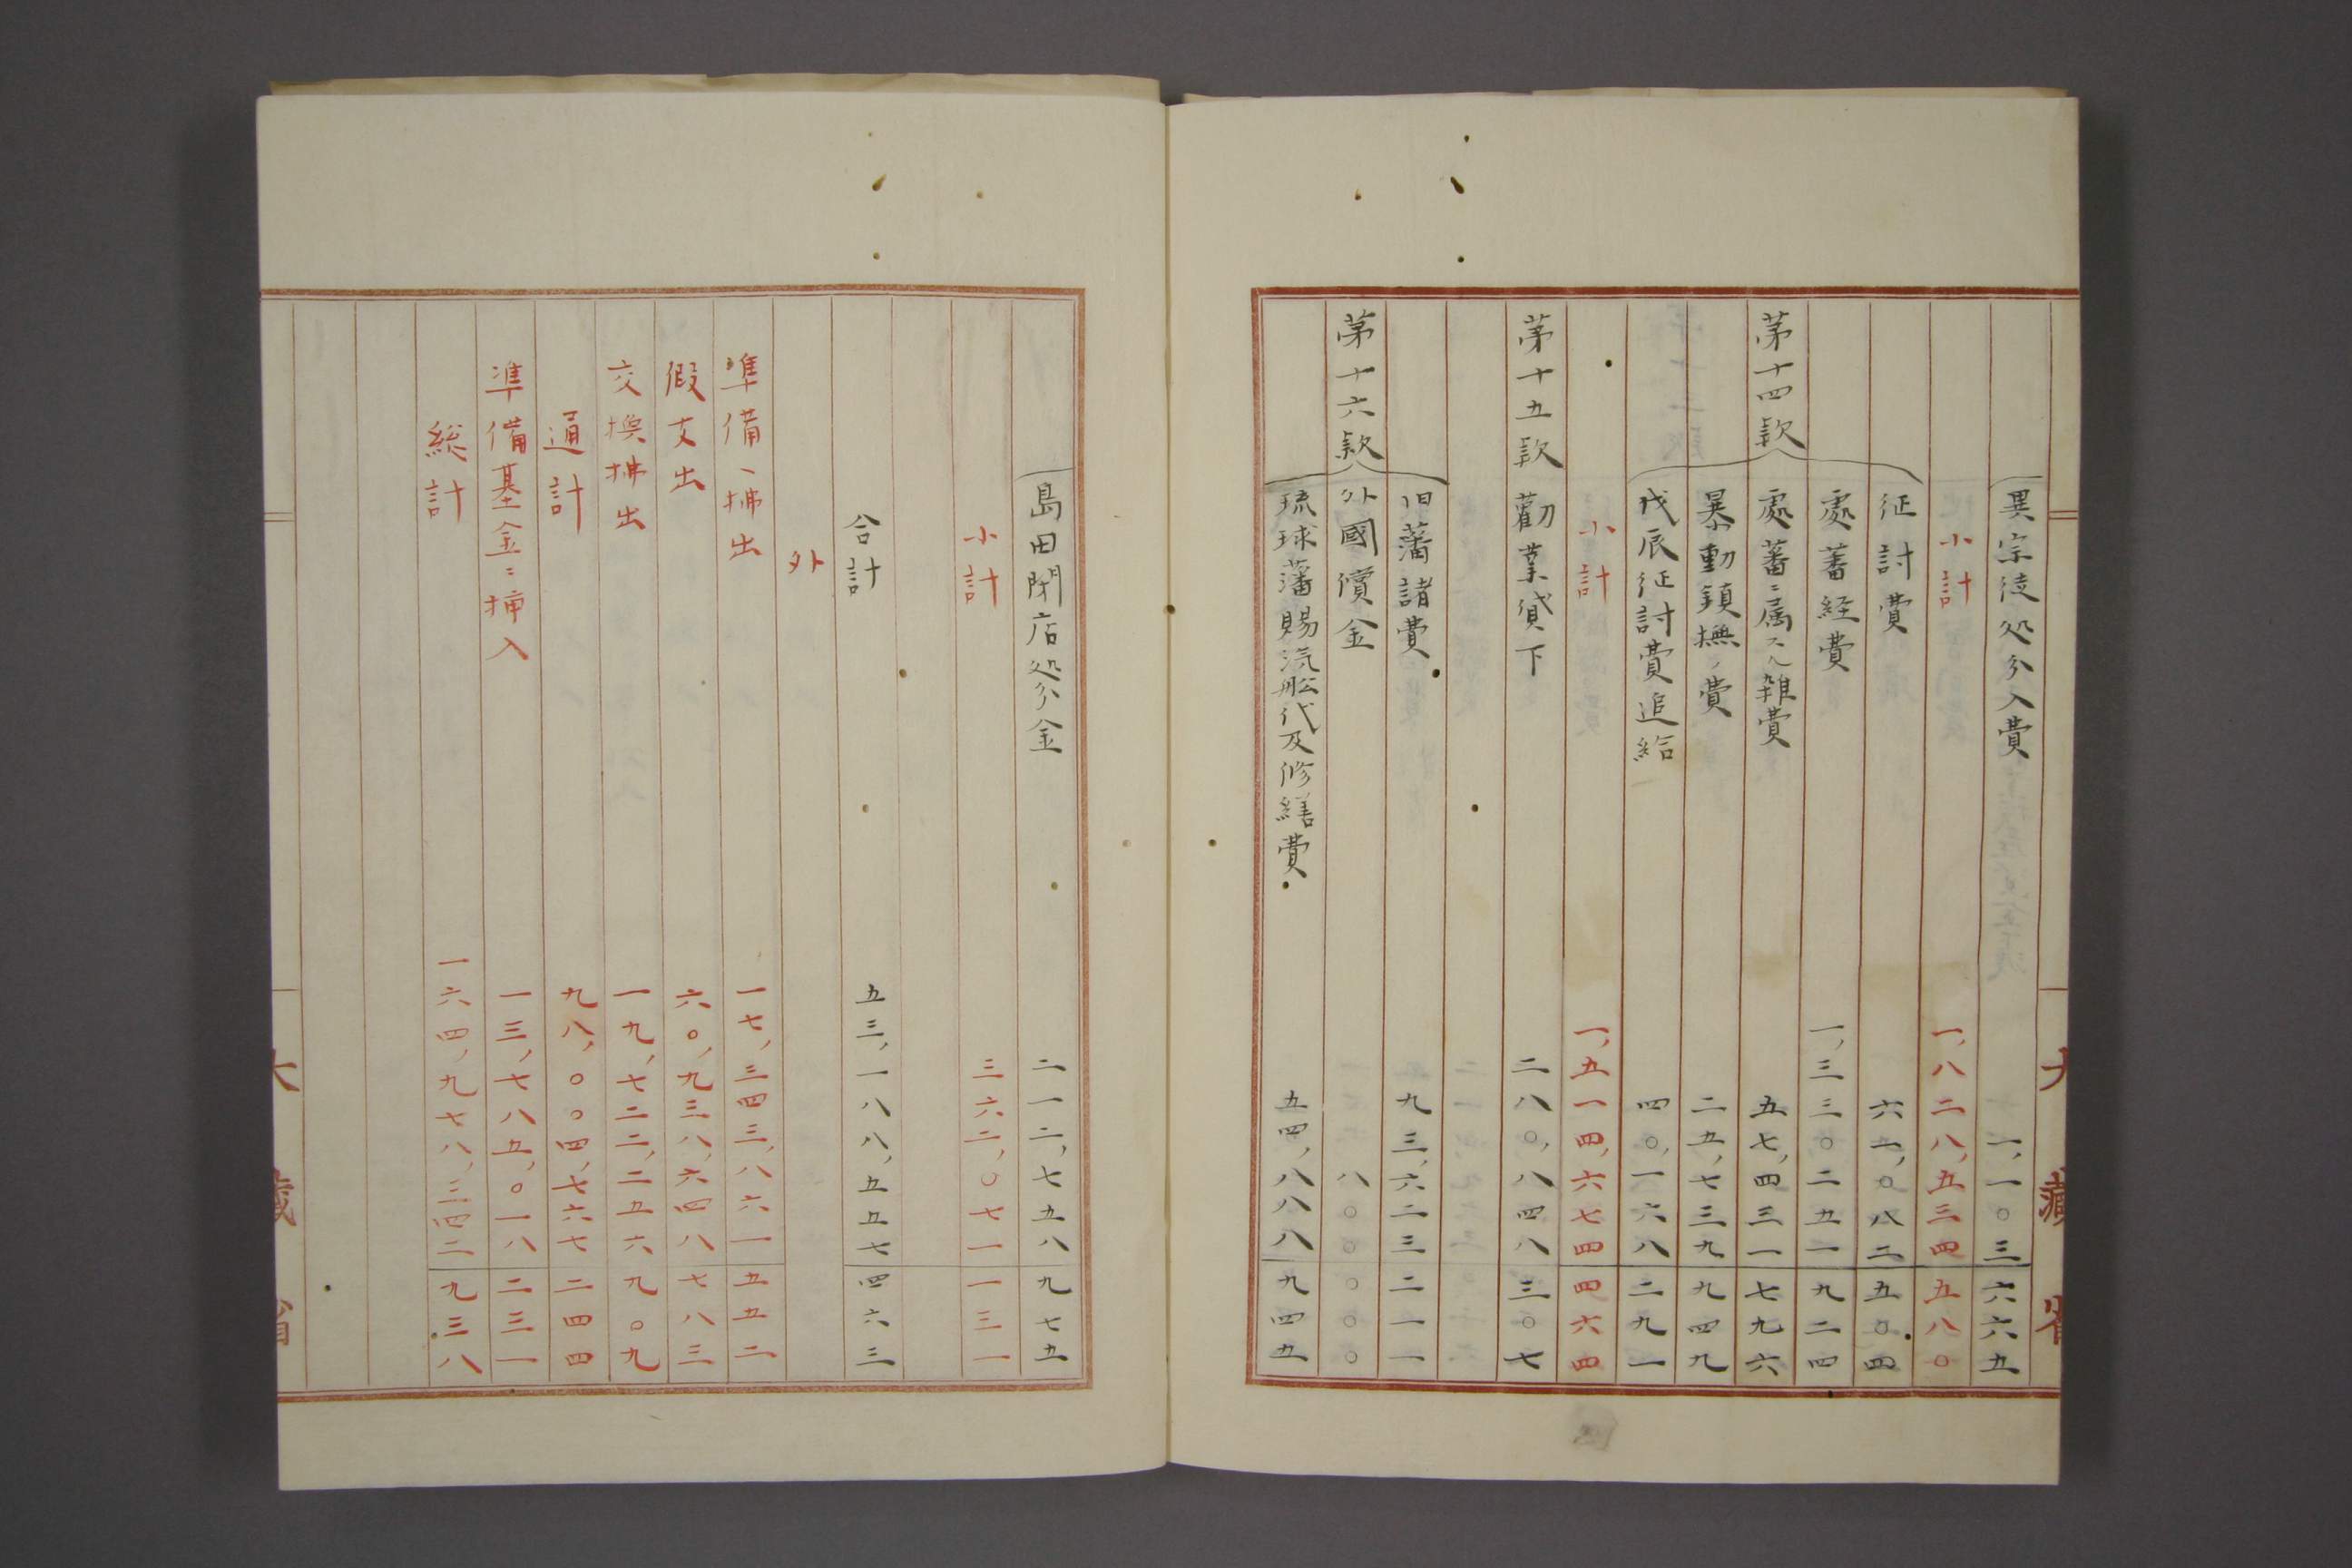 大藏省
異宗徒処分入費 一,一〇三六六五
小計 一,八二八,五三四五八〇
征討費 六一,〇八二五〇四
處蕃経費 一,三三〇二五一九二四
第十四款 處蕃ニ属スル雑費 五七,四三一七九六
暴動鎮撫ノ費 二五,七三九九四九
戊辰征討費追給 四〇,一六八二九一
小計 一,五一四,六七四四六四
第十五款 勸業貸下 二八〇,八四八三〇七
旧藩諸費 九三,六二三二一一
第十六款 外國償金 八〇〇〇〇〇
琉球藩賜汽舩代及修繕費 五四,八八八九四五
島田閉店処分金 二一二,七五八九七五
小計 三六二,〇七一一三一
合計 五三,一八八,五五七四六三
外
準備ノ拂出 一七,三四三,八六一五五二
假支出 六〇,九三八,六四八七八三
交換拂出 一九,七二二,二五六九〇九
通計 九八,〇〇四,七六七二四四
準備基金ニ挿入 一三,七八五,〇一八二三一
総計 一六四,九七八,三四二九三八
大藏省